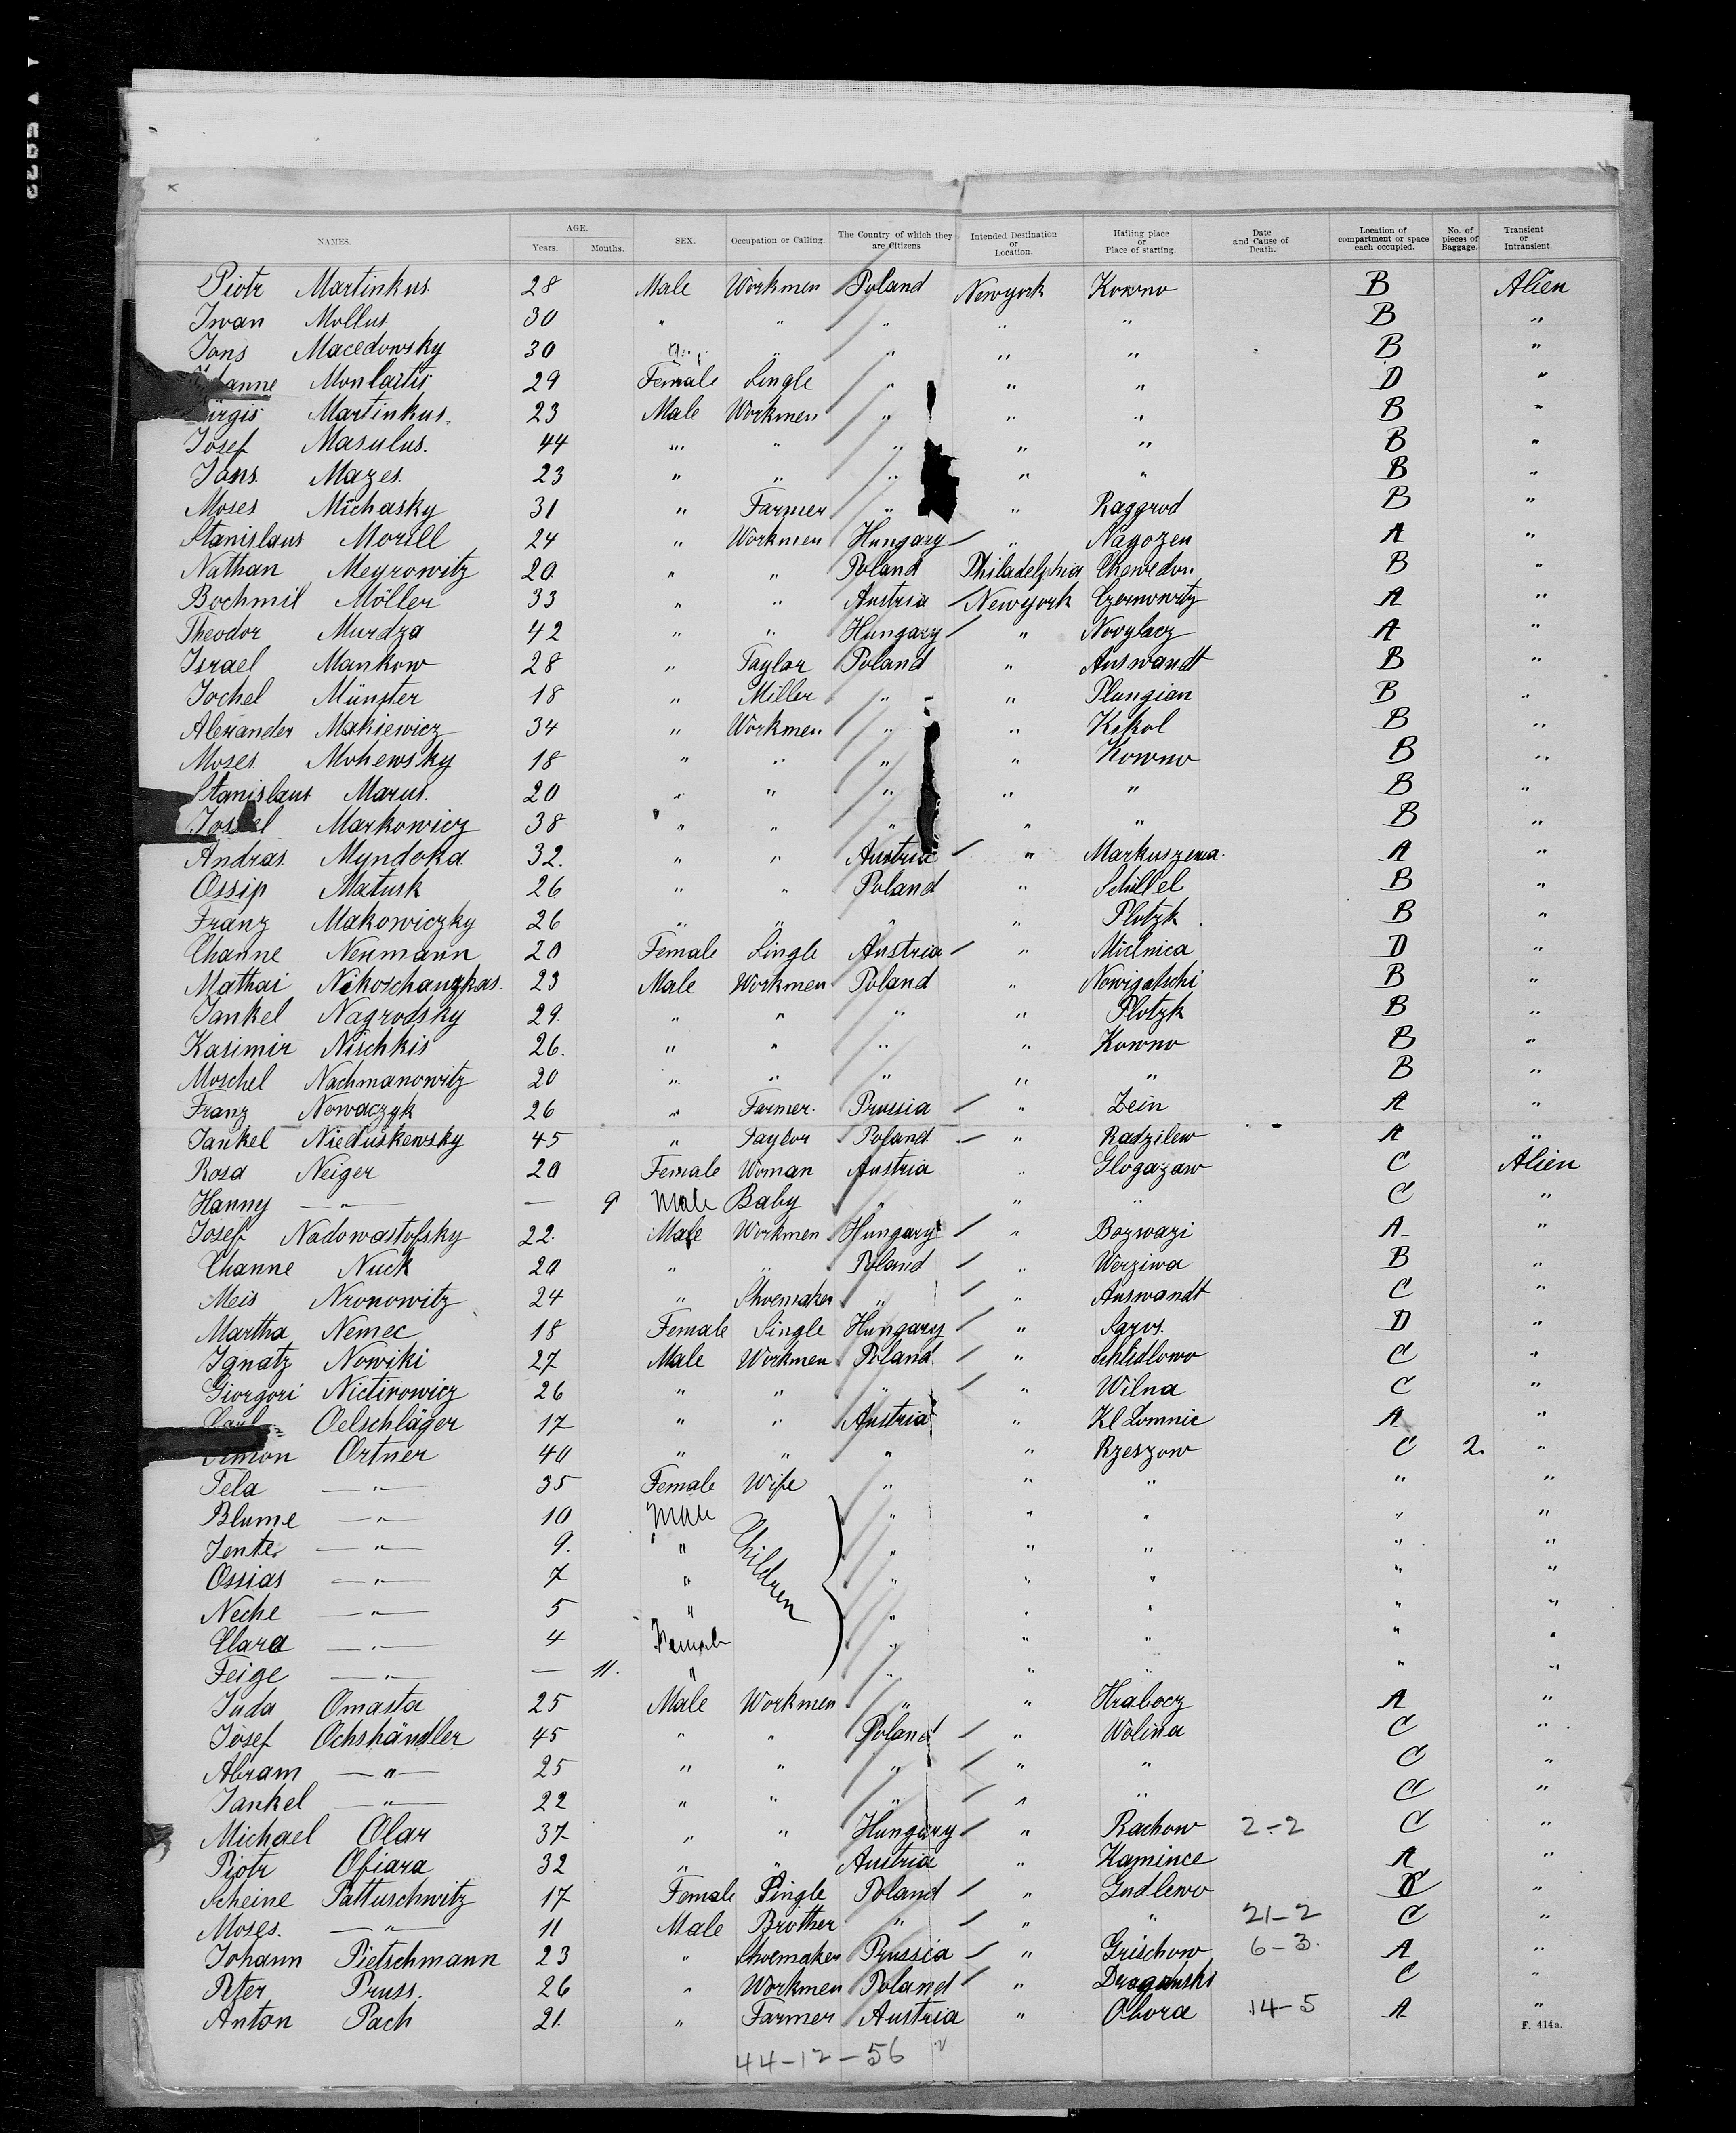 NAMES. AGE. Years. Months. SEX. Occupation or Calling. The Country of which they are Citizens Intended Destination or Location. Hailing place or Place of starting. Date and Cause of Death. Location of compartment or space each occupied. No. of pieces of Baggage. Transient or Intransient.
Piotr Martinkus. 28 Male Workmen Poland Newyork Kowno B Alien
Iwan Mollus 30 " " " " " B "
Jons Macedowsky 30 " " " " B "
Monlaitis 29 Female Single " " " D "
Martinkus. 23 Male Workmen " " " B "
Josef Masulus. 44 " " " " " B "
Jons. Mazes. 23 " " " " " B "
Moses Michasky 31 " Farmer " " Raggrod B "
Stanislaus Morell 24 " Workmen Hungary " Nagozen A "
Nathan Meyrowitz 20 " " Poland Philadelphia B "
Bochmil Möller 33 " " Austria Newyork Czernowitz A "
Theodor Murdza 42 " " Hungary " Novylacz A "
Israel Mankow 28 " Taylar Poland " Auswandt B "
Jochel Münster 18 " Miller " " Plungian B "
Alexander Makiewicz 34 " Workmen " " Kikol B "
Moses. Mohewsky 18 " " " " Kowno B "
Stanislaus Marus. 20 " " " " " B "
Jossel Markowicz 38 " " " " " B "
Andras. Myndoka 32. " " Austria " Markuszewa. A "
Ossip Matusk 26 " " Poland " Schillel B "
Franz Makowiczky 26 " " " " Plotzk B "
Channe Neumann 20 Female Single Austria " Mielnica D "
Mathai Nikoschangkas. 23 Male Workmen Poland " Nowigatschi B "
Jankel Nagrodsky 29. " " " " Plotzk B "
Kasimir Nischkis 26. " " " " Kowno B "
Moschel Nachmanowitz 20 " " " " " B "
Franz Nowaczyk 26 " Farmer. Prussia " Zein A "
Jankel Nieduskewsky 45 " Taylor Poland " Radzilew A "
Rosa Neiger 20 Female Woman Austria " Glogazaw C Alien
Hanny —"— — 9 Male Baby " " " C "
Josef Nadowastofsky 22. Male Workmen Hungary " Bozwazi A "
Channe Nuck 20 " " Poland " Werziwa B "
Meis Nronowitz 24 " Shoemaker " " Auswandt C "
Martha Nemec 18 Female Single Hungary " Saros. D "
Ignatz Nowiki 27 Male Workmen Poland " Schidlowo C "
Giorgori Nictirowicz 26 " " " " Wilna C "
Carl Oelschläger 17 " " Austria " Kl Lomnic A "
Simon Ortner 40 " " " " Rzeszow C 2. "
Tela —"— 35 Female Wife " " " " "
Blume —"— 10 Male Children " " " " "
Jente —"— 9. " " " " " "
Ossias —"— 7 " " " " " "
Neche —"— 5 " " " " " "
Clara —"— 4 Female " " " " "
Feige —"— — 11. " " " " " "
Juda Omasta 25 Male Workmen " " Hrabocz A "
Josef Ochshändler 45 " " Poland " Wolina C "
Abram —"— 25 " " " " " C "
Jankel —"— 22 " " " " " C "
Michael Olar 37 " " Hungary " Rachow 2-2 C "
Piotr Ofiara 32 " " Austria " Kamince A "
Scheine Pattuschwitz 17 Female Single Poland " Gudlewo "
Moses. —"— 11 Male Brother " " " 21-2 C "
Johann Pietschmann 23 " Shoemaker Prussia " Grischow 6-3. A "
Peter Pruss. 26 " Workmen Poland " C "
Anton Pach 21. " Farmer Austria " Obora 14-5 A "
F. 414a.
44-12-56